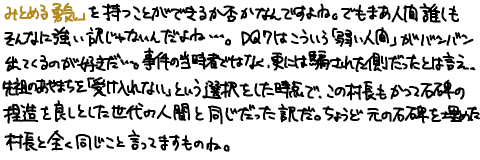 みとめる勇気」を持つことができるか否かなんですよね。でもまあ人間誰しも
そんなに強い訳じゃないんだよね…。DQ7はこういう「弱い人間」がバンバン
出てくるのが好きだ…。事件の当時者ではなく、更には騙された側だったとは言え、
先祖のあやまちを「受け入れない」という選択をした時点で、この村長もかつて石碑の
捏造を良しとした世代の人間と同じだった訳だ。ちょうど元の石碑を埋めた
村長と全く同じこと言ってますものね。